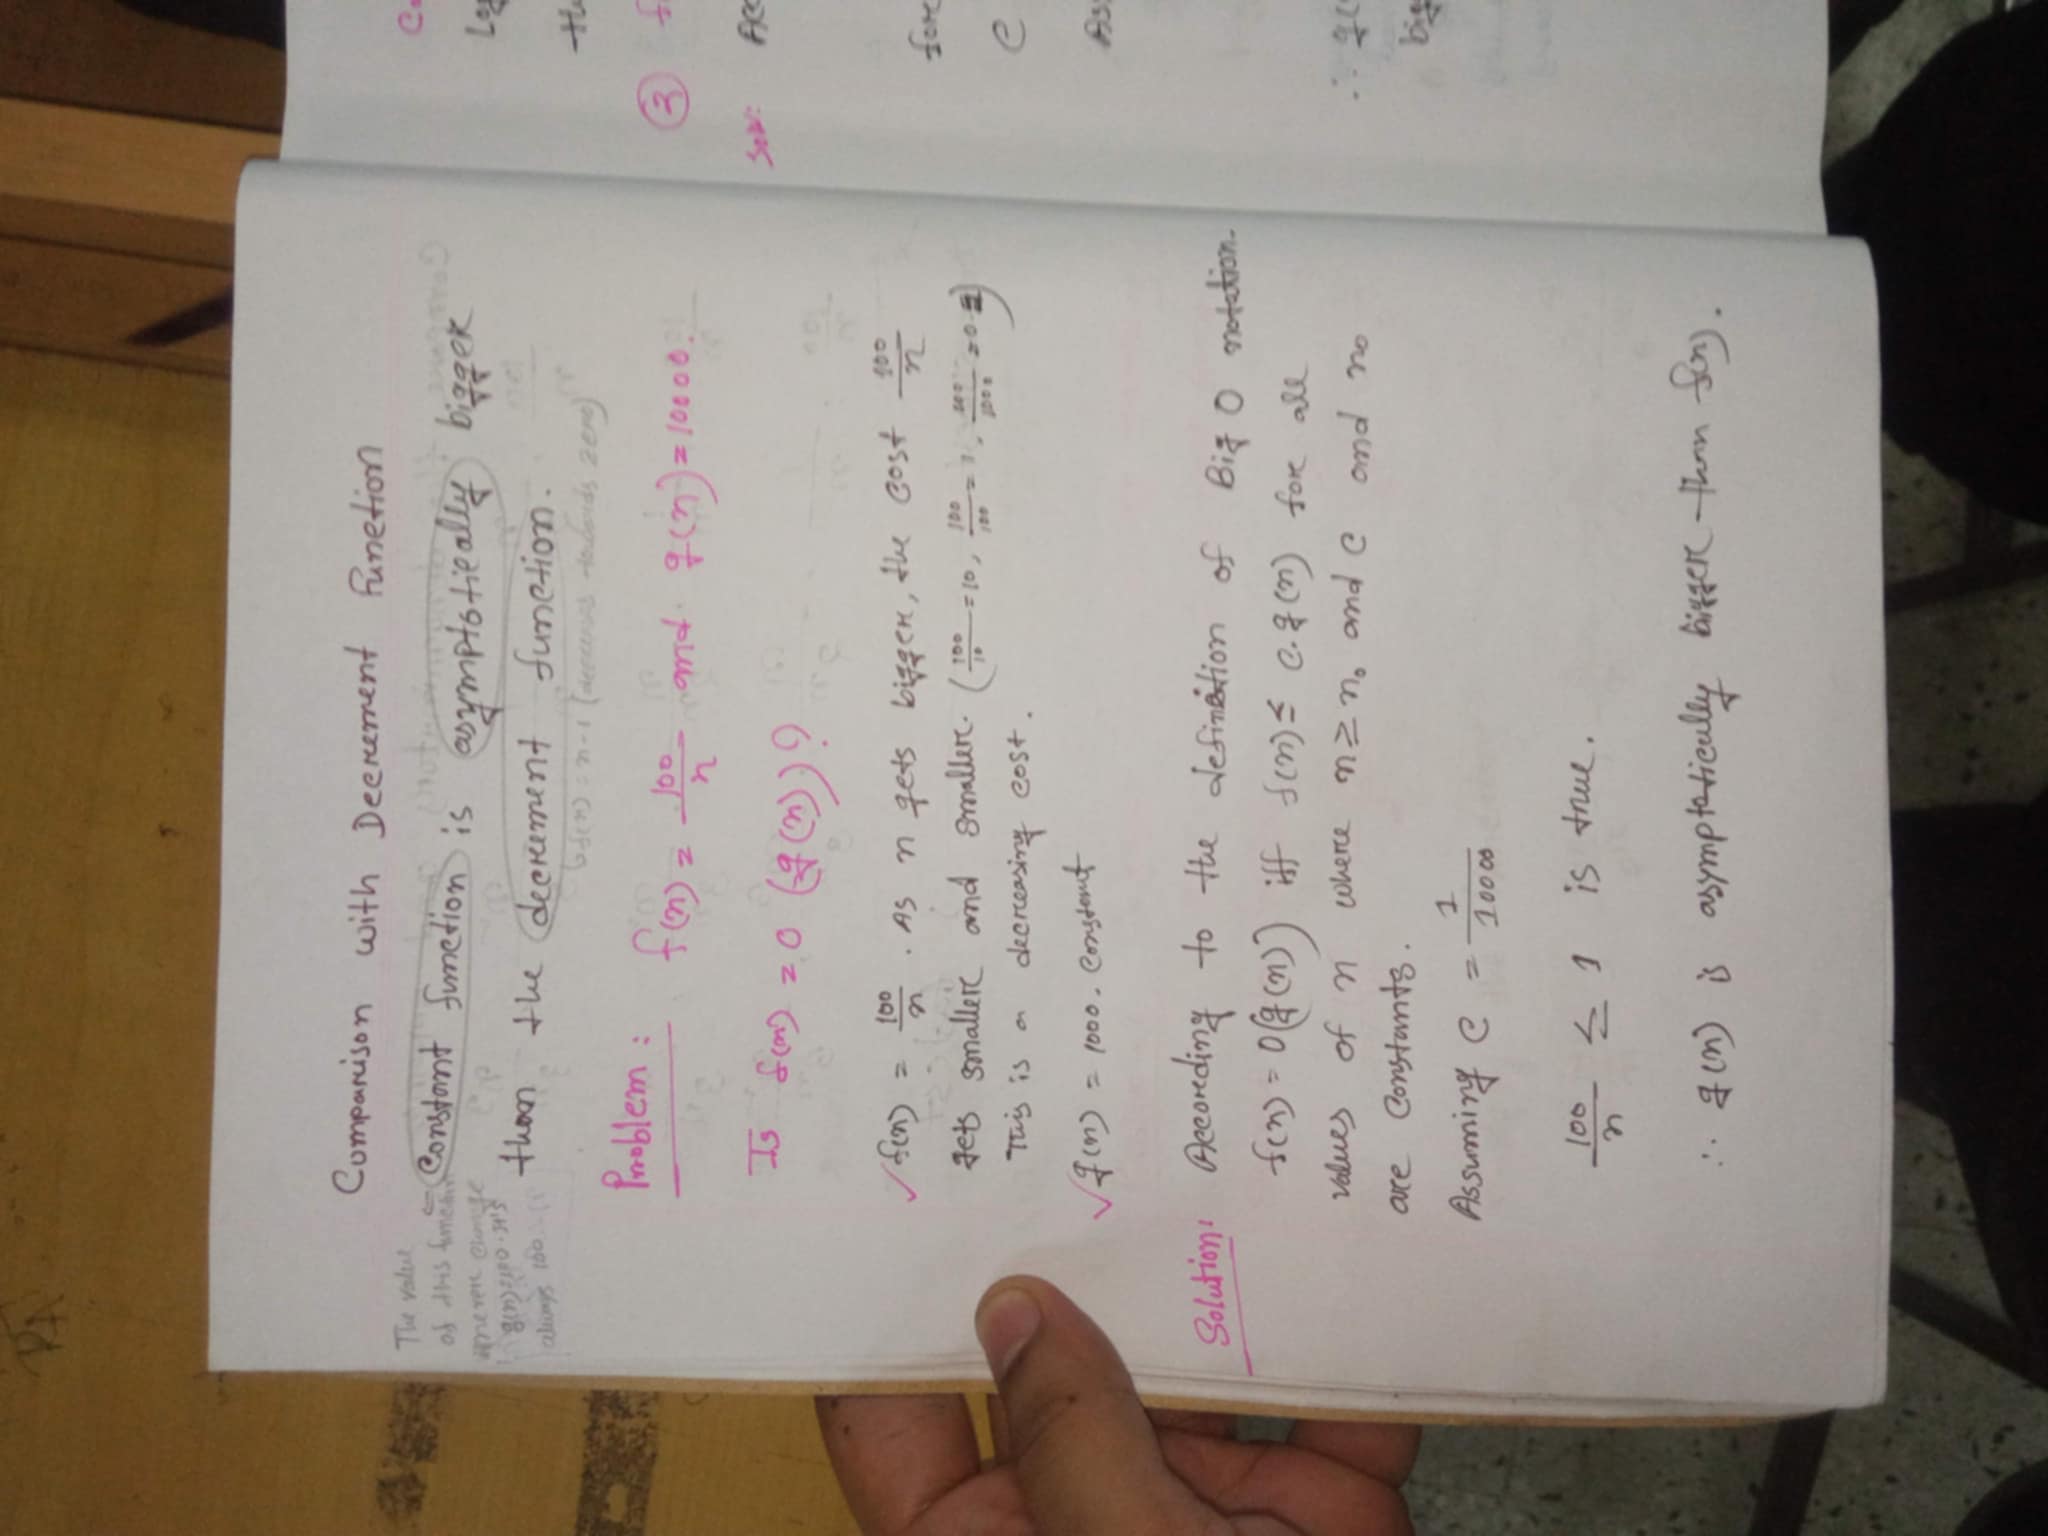 Comparison with Decrement Function
The value
of this function
never change
g(n)=100. It's
always 100
Constant function is asymptotically bigger
than the decrement function.
f(n) = n-1 (decreases towards zero)
Problem: f(n) = 100/n and g(n) = 10000.
Is f(n) = O(g(n))?
✓ f(n) = 100/n. As n gets bigger, the cost 100/n
gets smaller and smaller. (100/10 = 10, 100/100 = 1,
This is a decreasing cost.
✓ g(n) = 1000. Constant
Solution: According to the definition of Big O notation.
f(n) = O(g(n)) iff f(n) ≤ c.g(n) for all
values of n where n ≥ n₀ and c and no
are constants.
Assuming c = 1/10000
100/n ≤ 1 is true.
∴ g(n) is asymptotically bigger than f(n).
Co
Log
the
② f
Soln: Acc
for
c
Ass
∴ g(
big